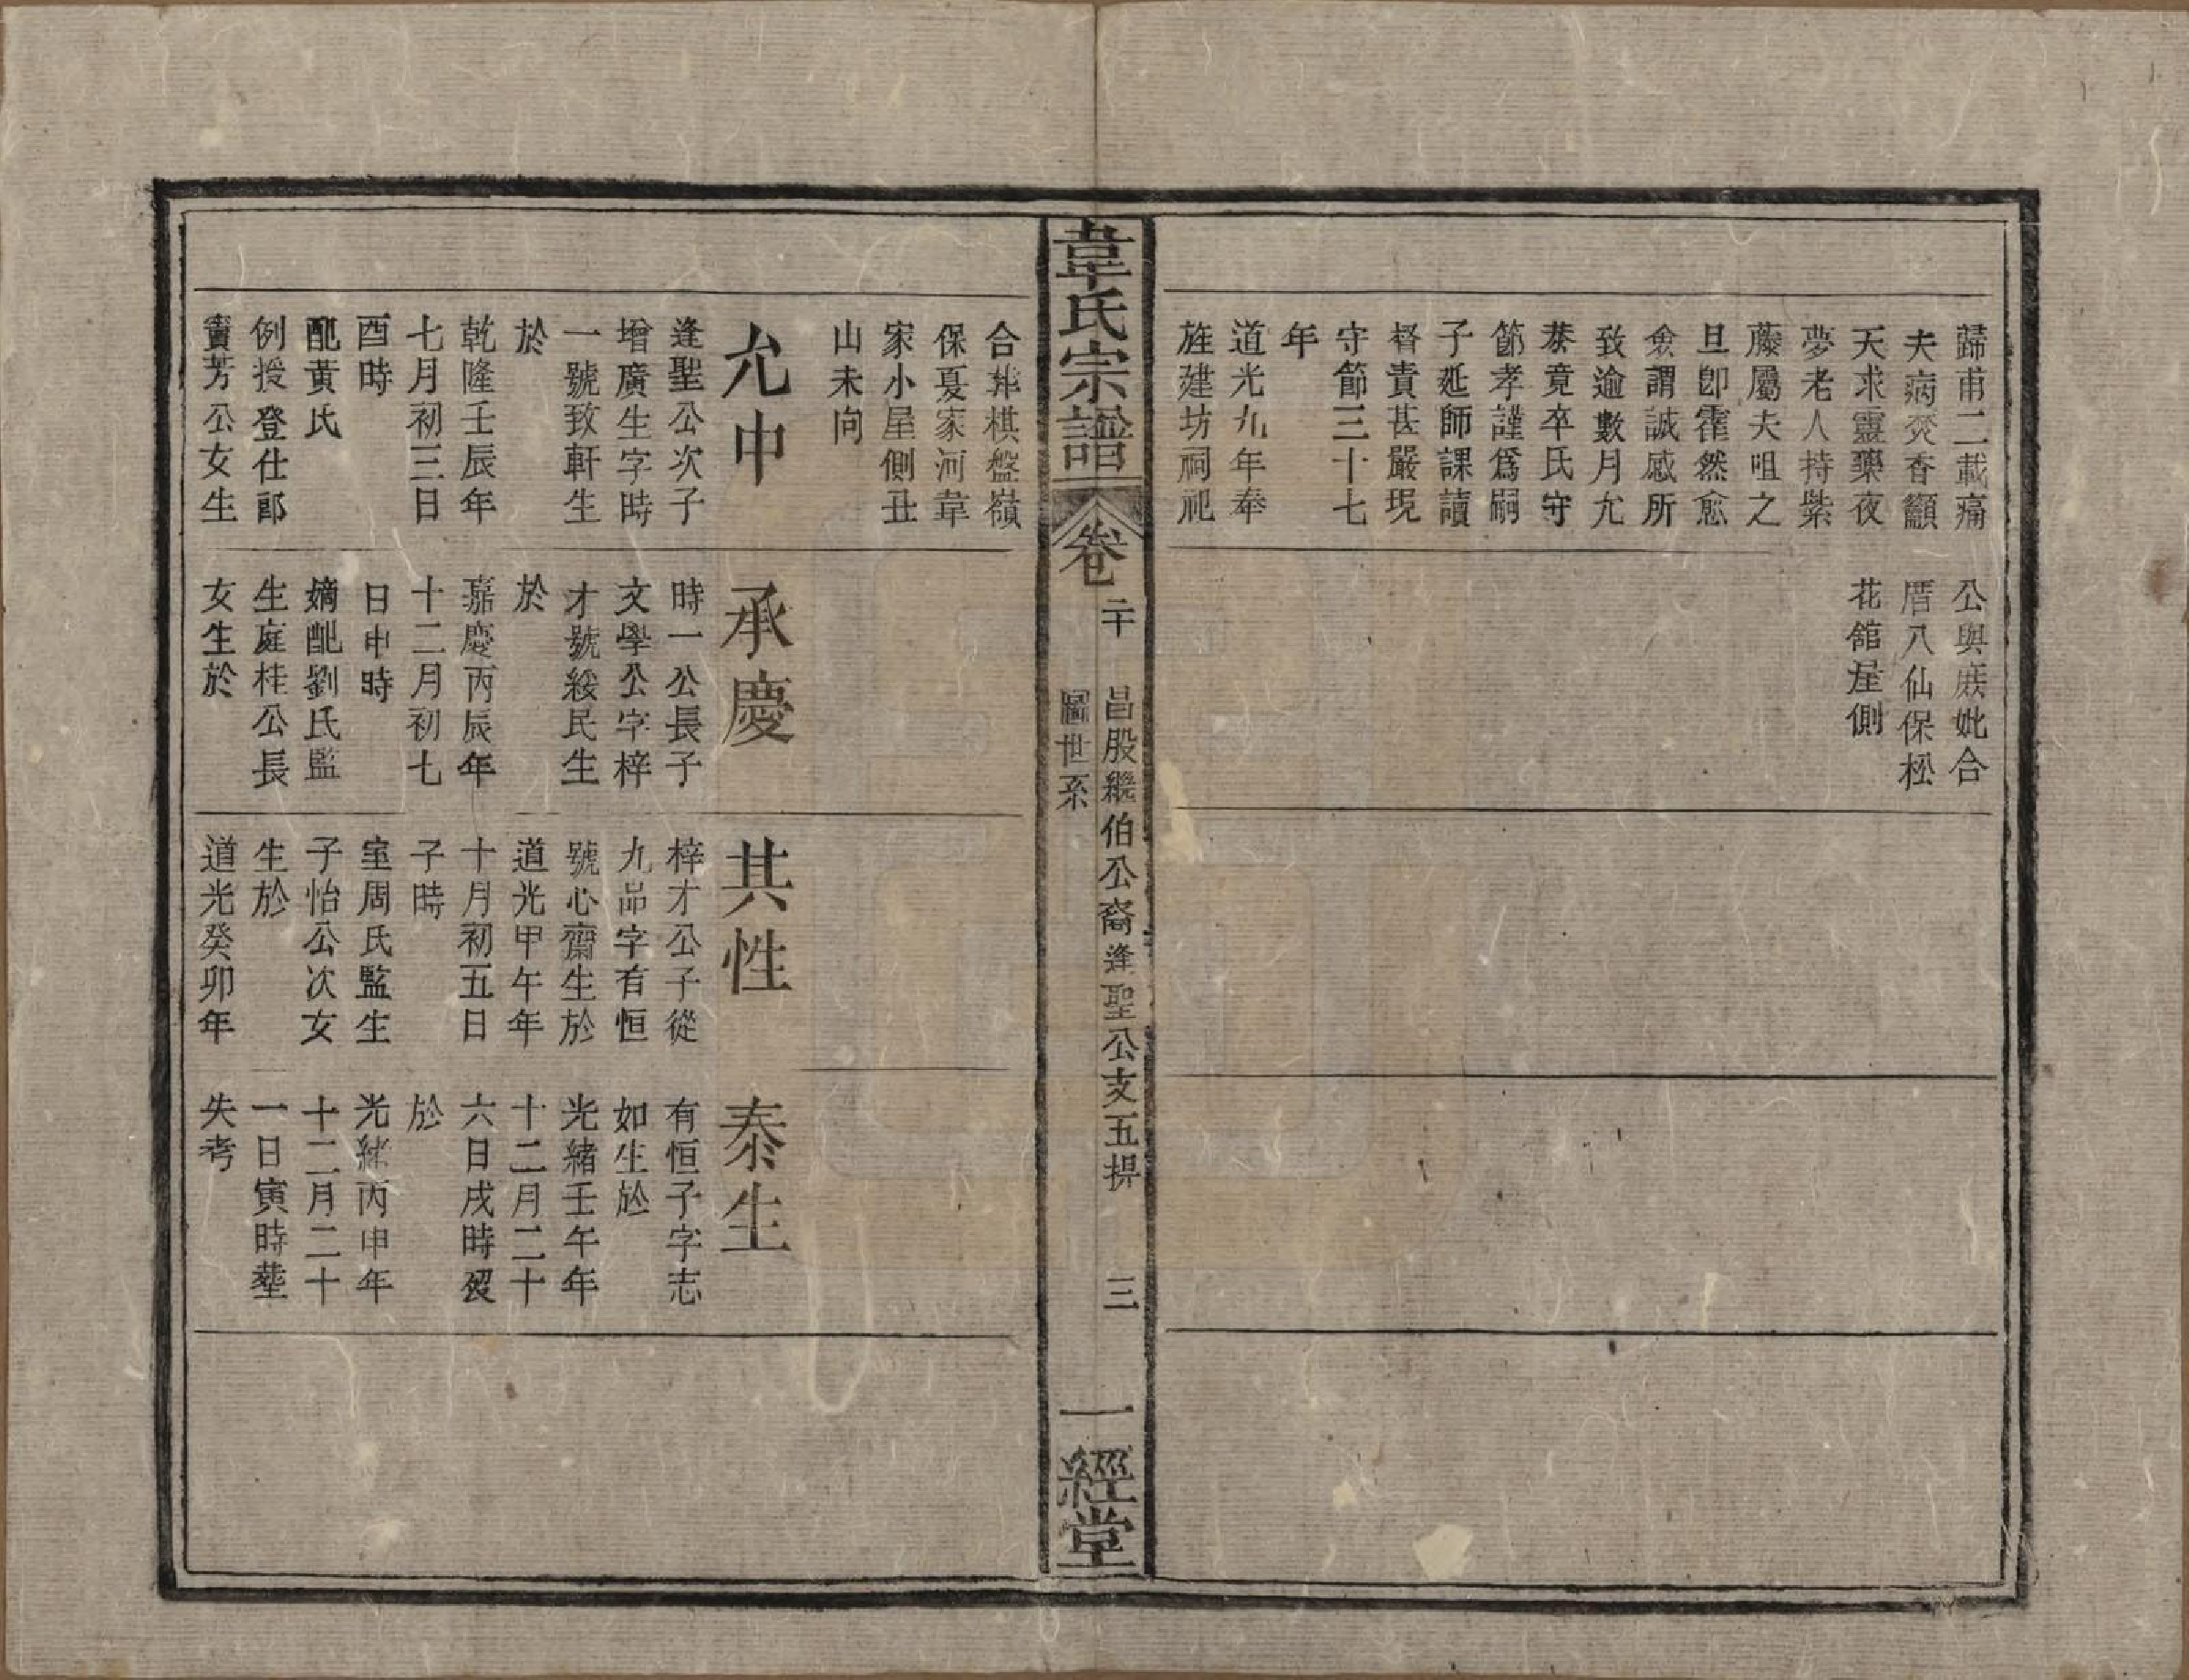 歸甫二載痛
夫病焚香籲
天求靈藥夜
夢老人持紫
藤屬夫咀之
旦卽霍然愈
僉謂誠感所
致逾數月允
恭竟卒氏守
節孝謹爲嗣
子延師課讀
督責甚嚴現
守節三十七
年
道光九年奉
旌建坊祠祀
公與庶妣合
厝八仙保松
花舘屋側
韋氏宗譜
卷二十
昌股繼伯公裔逢聖公支五提
圖世系
三
一經堂
合葬棋盤嶺
保夏家河韋
家小屋側丑
山未向
允中
逢聖公次子
增廣生字時
一號致軒生
於
乾隆壬辰年
七月初三日
酉時
配黃氏
例授登仕郎
賓芳公女生
承慶
時一公長子
文學公字梓
才號綏民生
於
嘉慶丙辰年
十二月初七
日申時
嫡配劉氏監
生庭桂公長
女生於
共性
梓才公子從
九品字有恒
號心齋生於
道光甲午年
十月初五日
子時
室周氏監生
子怡公次女
生於
道光癸卯年
泰生
有恒子字志
如生於
光緒壬午年
十二月二十
六日戌時歿
於
光緒丙申年
十二月二十
一日寅時塟
失考